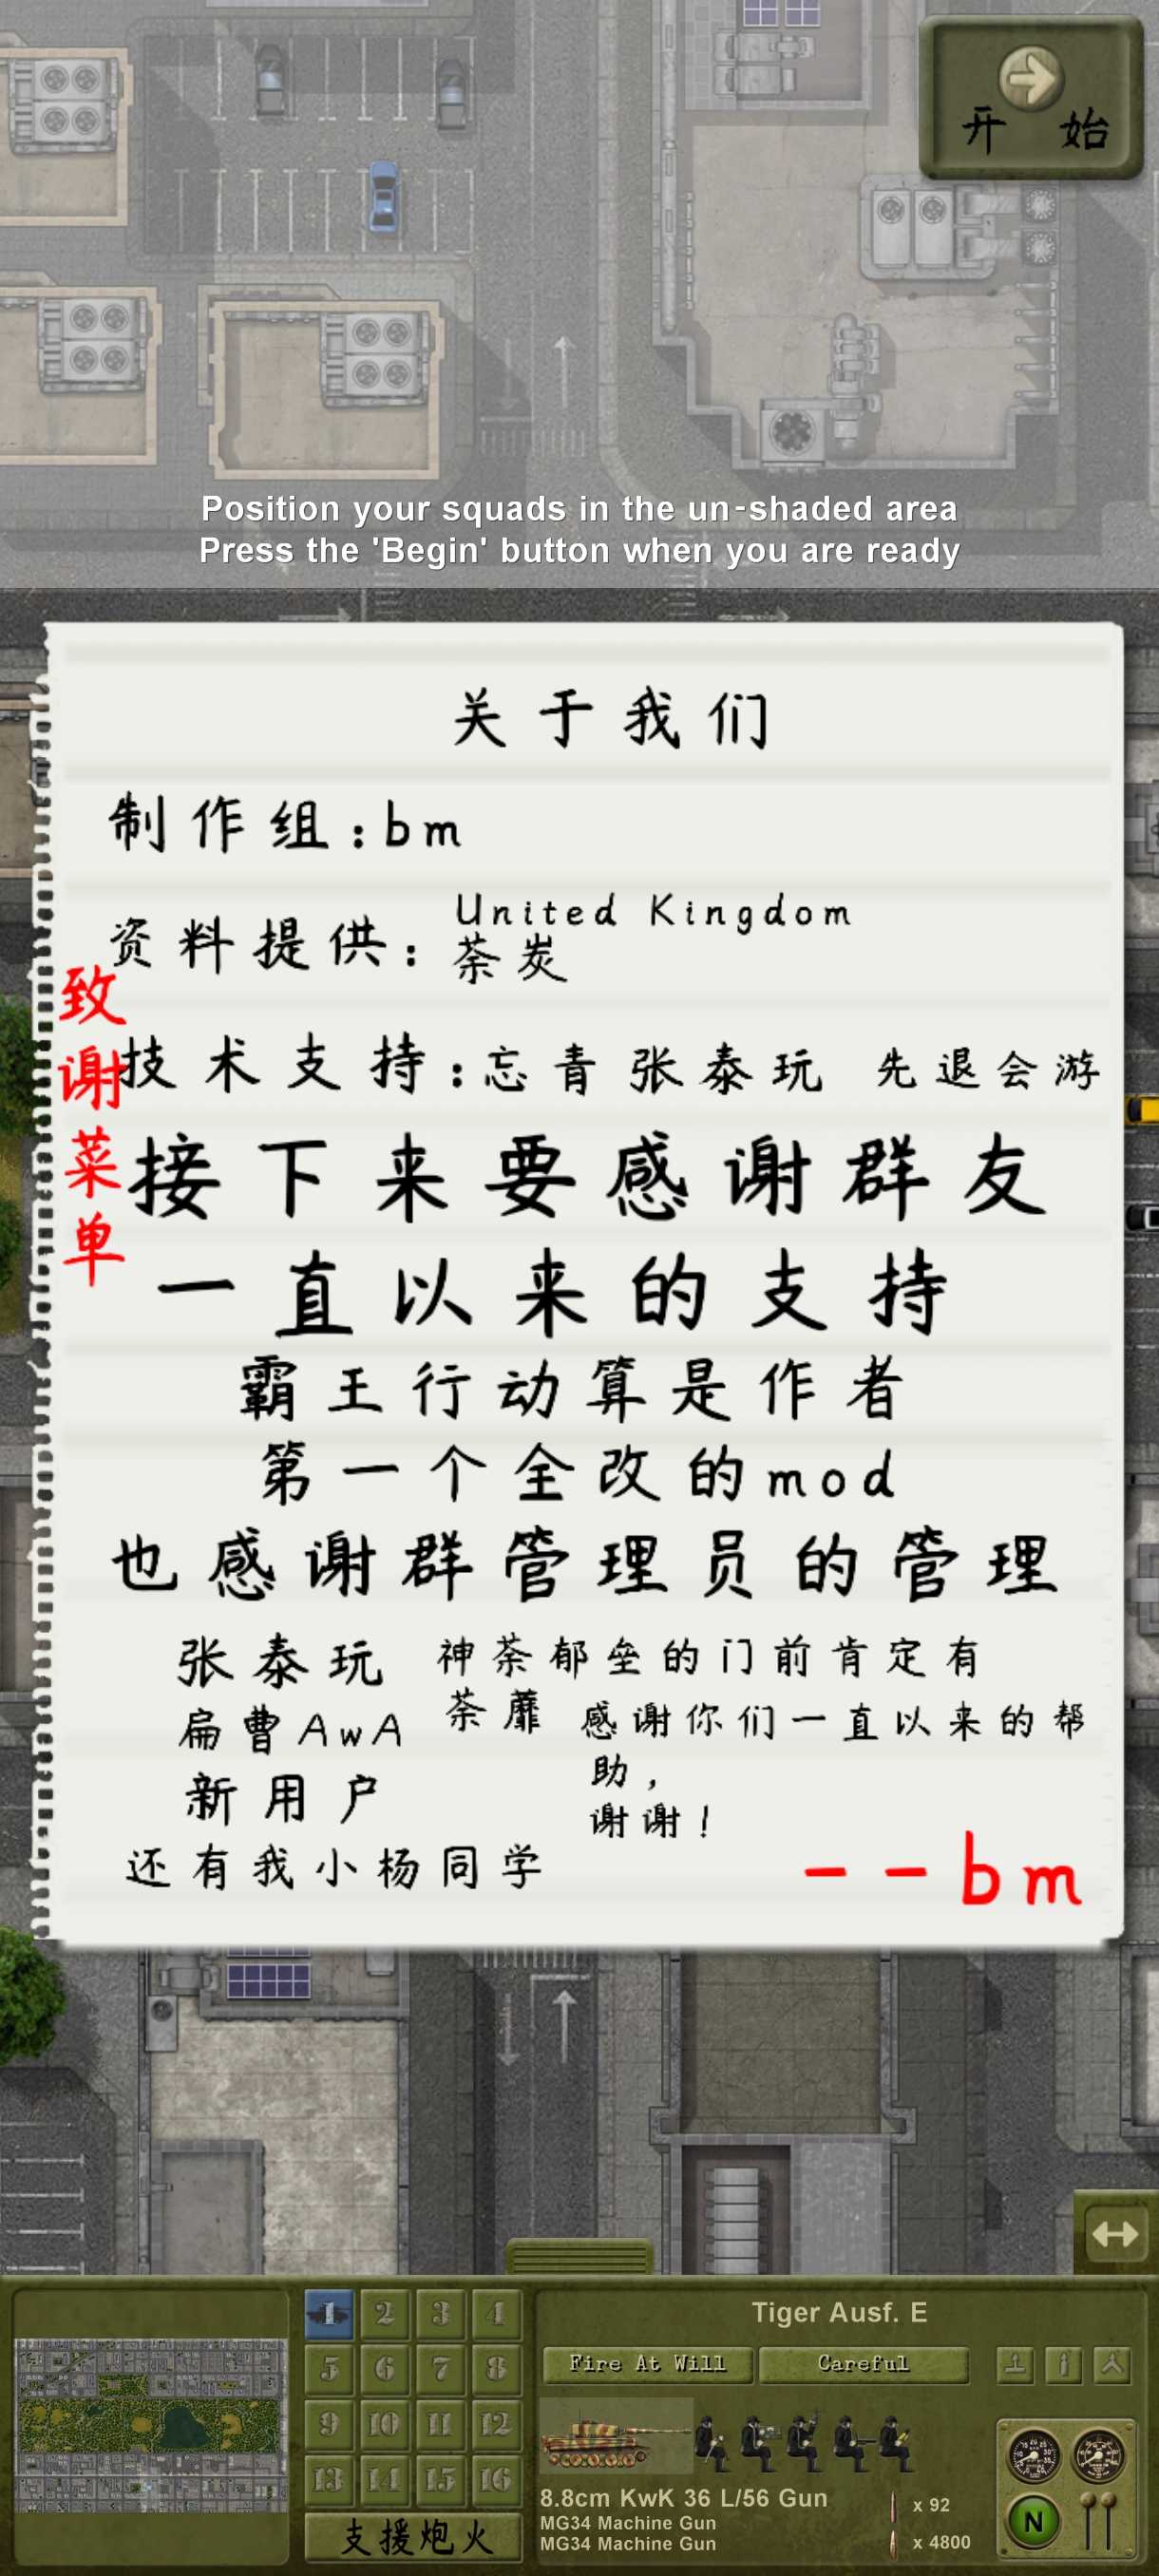 开 始
Position your squads in the un-shaded area
Press the 'Begin' button when you are ready
关于我们
制作组:bm
资料提供:
United Kingdom
荼炭
致谢菜单
技术支持:忘青 张泰玩 先退会游
接下来要感谢群友
一直以来的支持
霸王行动算是作者
第一个全改的mod
也感谢群管理员的管理
张泰玩
神荼郁垒的门前肯定有
荼蘼
扁曹AwA
感谢你们一直以来的帮
助,
谢谢!
新用户
还有我小杨同学
--bm
1 2 3 4
5 6 7 8
9 10 11 12
13 14 15 16
支援炮火
Tiger Ausf. E
Fire At Will
Careful
8.8cm KwK 36 L/56 Gun
x 92
MG34 Machine Gun
MG34 Machine Gun
x 4800
N